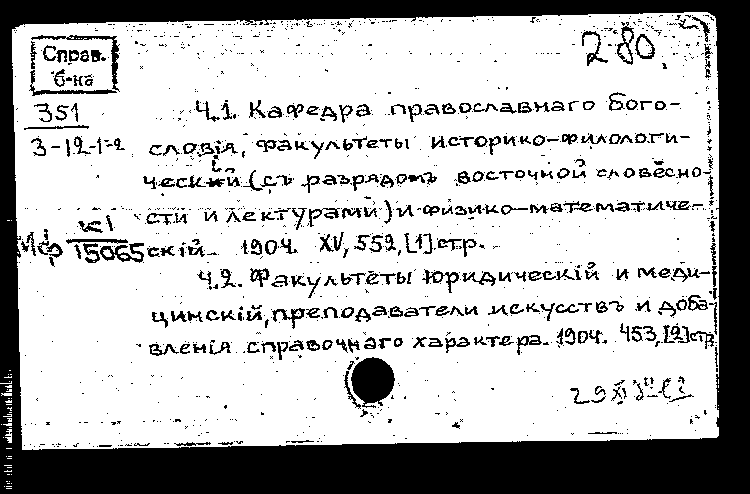 Справ.
б-ка
2-80.
351
3-12-1-2
Ч.1. Кафедра православнаго бого-
словія, факультеты историко-филологи-
ческій (съ разрядомъ восточной словесно-
сти и лектурами) и физико-математиче-
скій. 1904. XV, 552, [1] стр.
Мф К1
15065
Ч.2. Факультеты юридическій и меди-
цинскій, преподаватели искусствъ и доба-
вленія справочнаго характера. 1904. 453, [2] стр.
29 XI